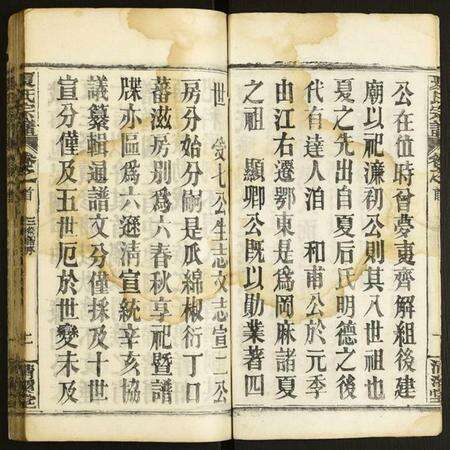 公在位時曾夢夷齊解組後建
廟以祀濂初公則其入世祖也
夏之先出自夏后氏明德之後
代有達人洎 和甫公於元季
由江右遷鄂東是為岡麻諸夏
之祖 顯卿公既以勛業著四
世 七公生志文志宣二公
房分始分嗣是瓜綿椒衍丁口
蕃滋房別為六春秋享祀暨譜
牒亦區為六遜清宣統辛亥協
議纂輯通譜文分僅採及十世
宣分僅及五世厄於世變未及
夏氏宗譜 卷之首
清源堂
夏氏宗譜 卷之首